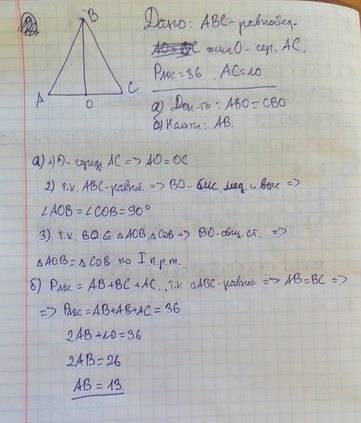 2
B
A
O
C
Дано: ABC-равнобед.
тчка O-сер. AC.
PABC=36 AC=10
а) Док-ть: ABO=CBO
б) Найти: AB
а) 1) O-серед AC => AO=OC
2) т.к. ABC-равноб. => BO-бис. мед. и выс =>
∠AOB=∠COB=90°
3) т.к. BO ∈ △AOB, △COB => BO-общ. ст. =>
△AOB=△COB по I п.р.т.
б) PABC = AB+BC+AC, т.к △ABC-равноб. => AB=BC =>
=> PABC=AB+AB+AC=36
2AB+10=36
2AB=26
AB=13